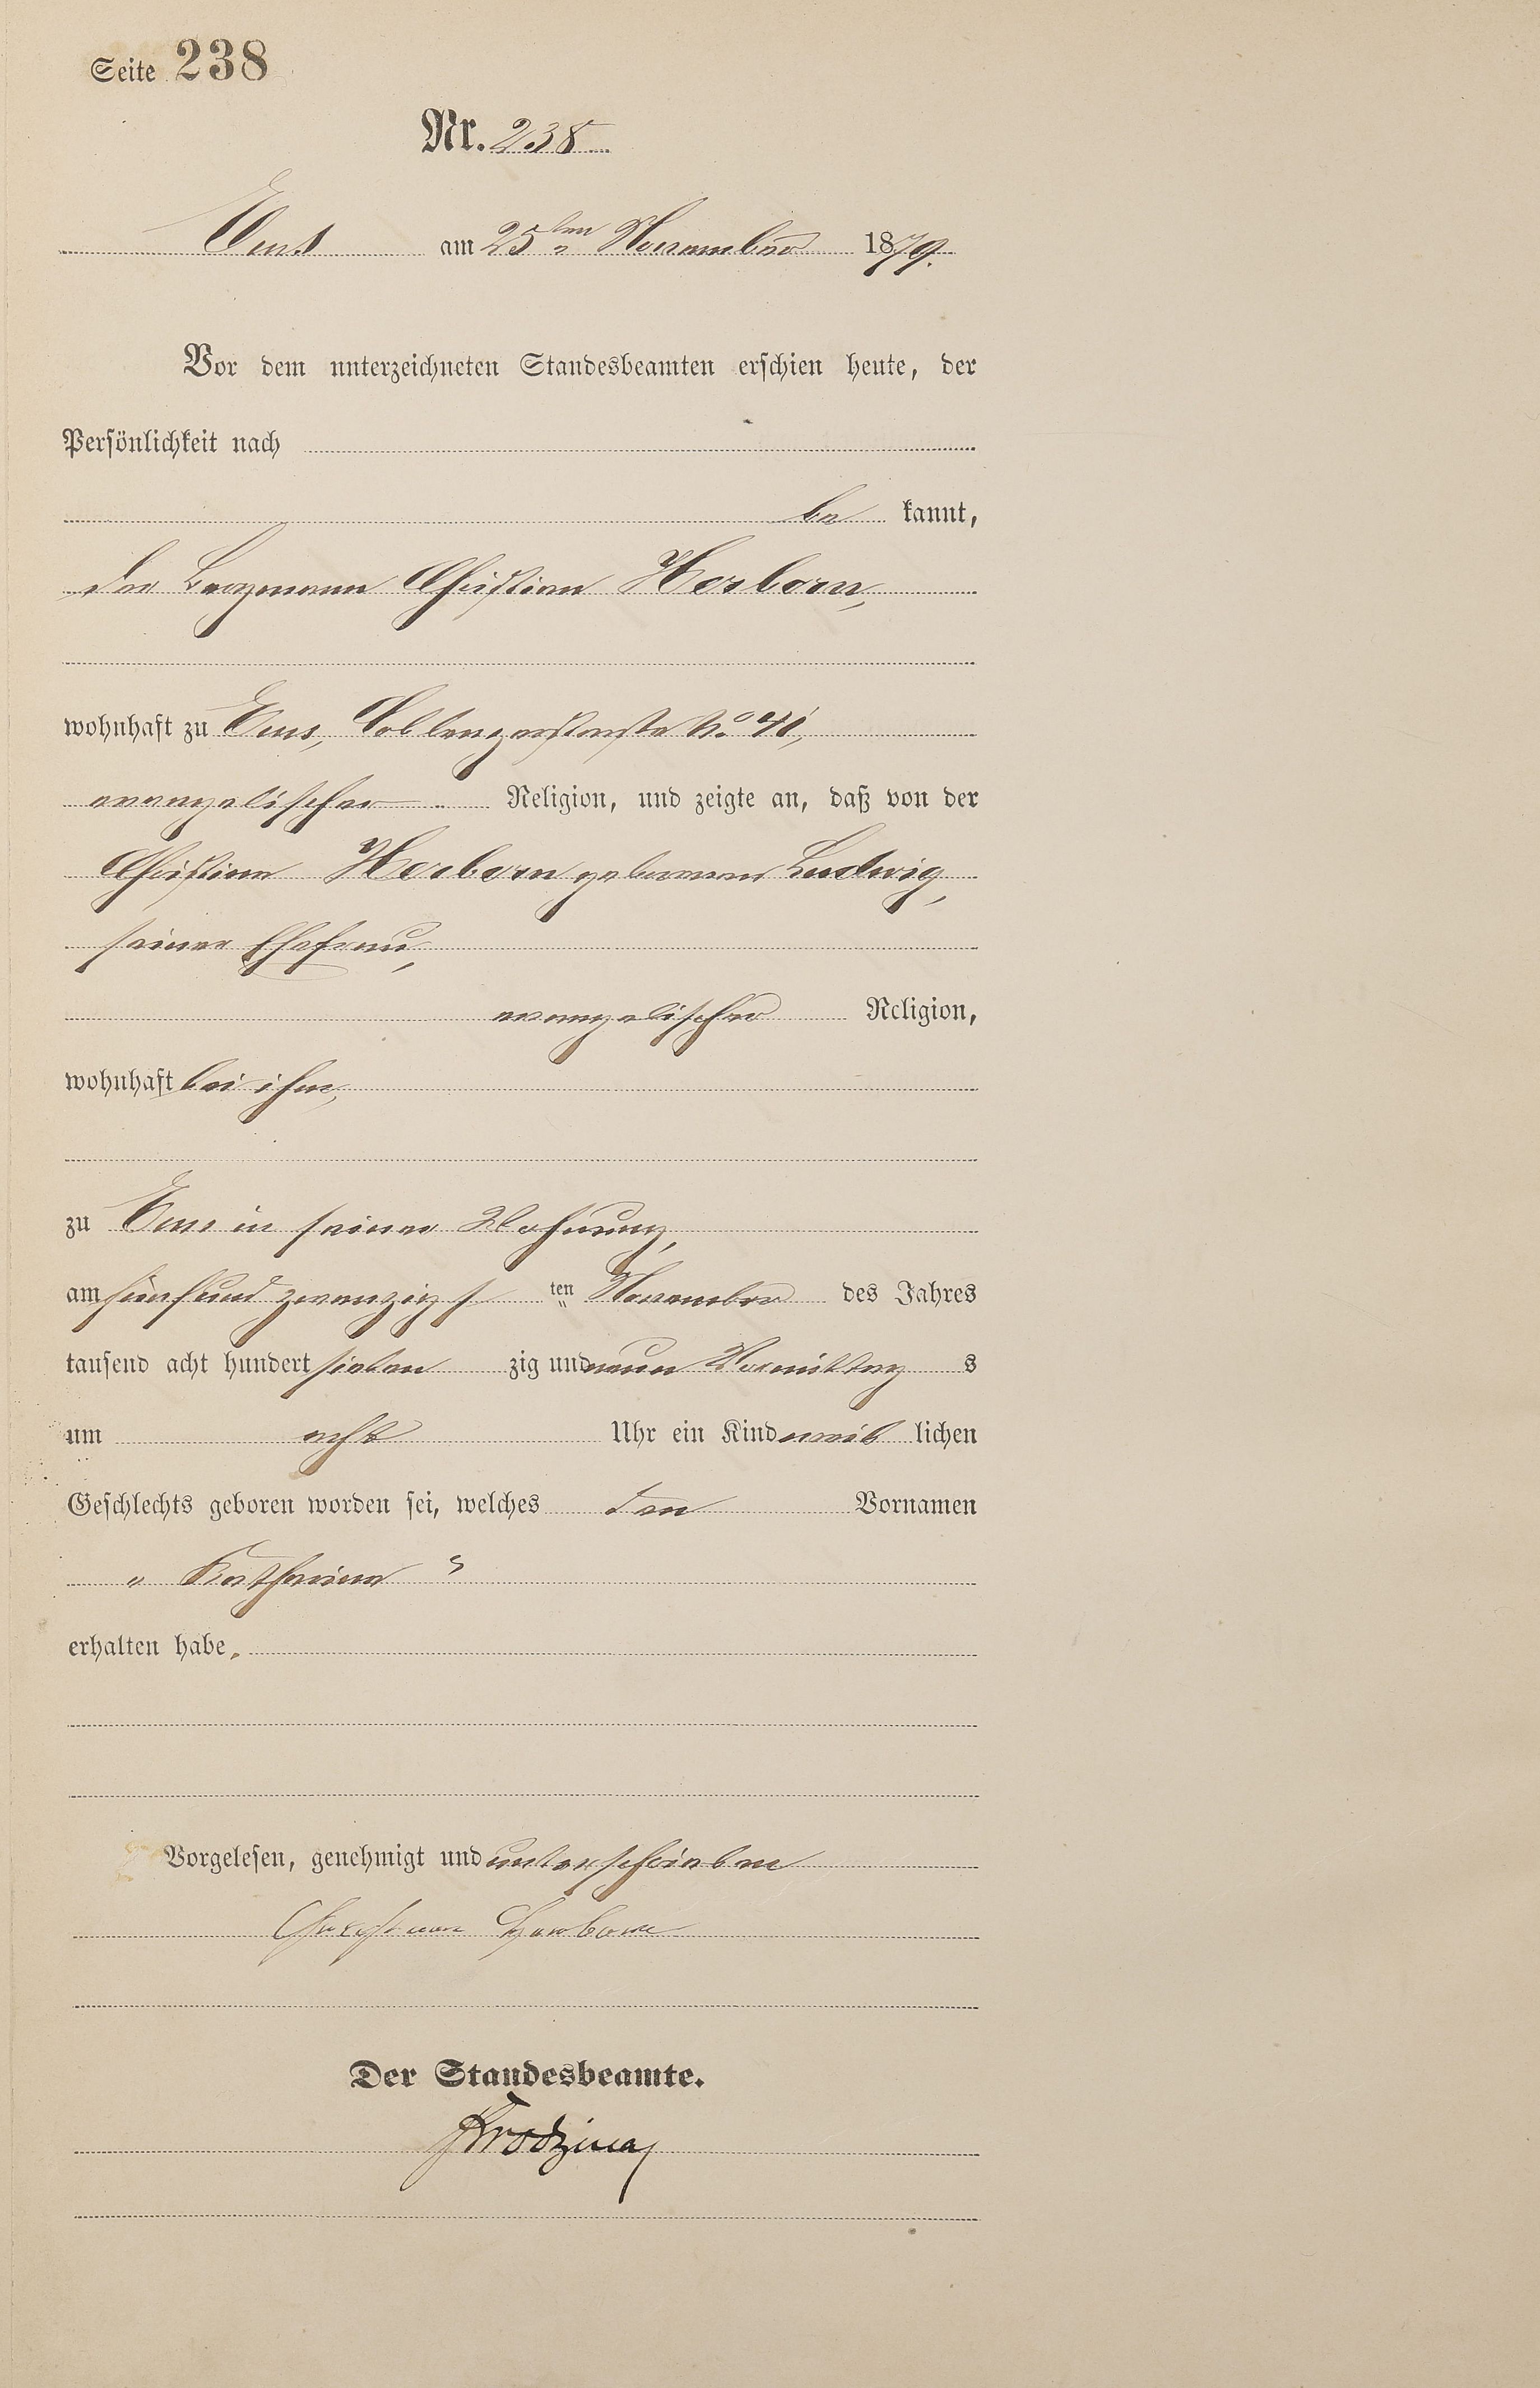 Seite 238
Nr. 238
Ems am 25ten November 1879.
Vor dem unterzeichneten Standesbeamten erschien heute, der
Persönlichkeit nach
be kannt,
der Bergmann Christian Herborn,
wohnhaft zu Ems, Coblenzerstraße No 41,
evangelischer Religion, und zeigte an, daß von der
Christine Herborn geborenen Ludwig,
seiner Ehefrau,
evangelischer Religion,
wohnhaft bei ihm,
zu Ems in seiner Wohnung,
am fünfundzwanzigs ten November des Jahres
tausend acht hundert sieben zig und neun Vormittag s
um acht Uhr ein Kind weib lichen
Geschlechts geboren worden sei, welches den Vornamen
" Katharina "
erhalten habe.
Vorgelesen, genehmigt und unterschrieben
Christian Herborn
Der Standesbeamte.